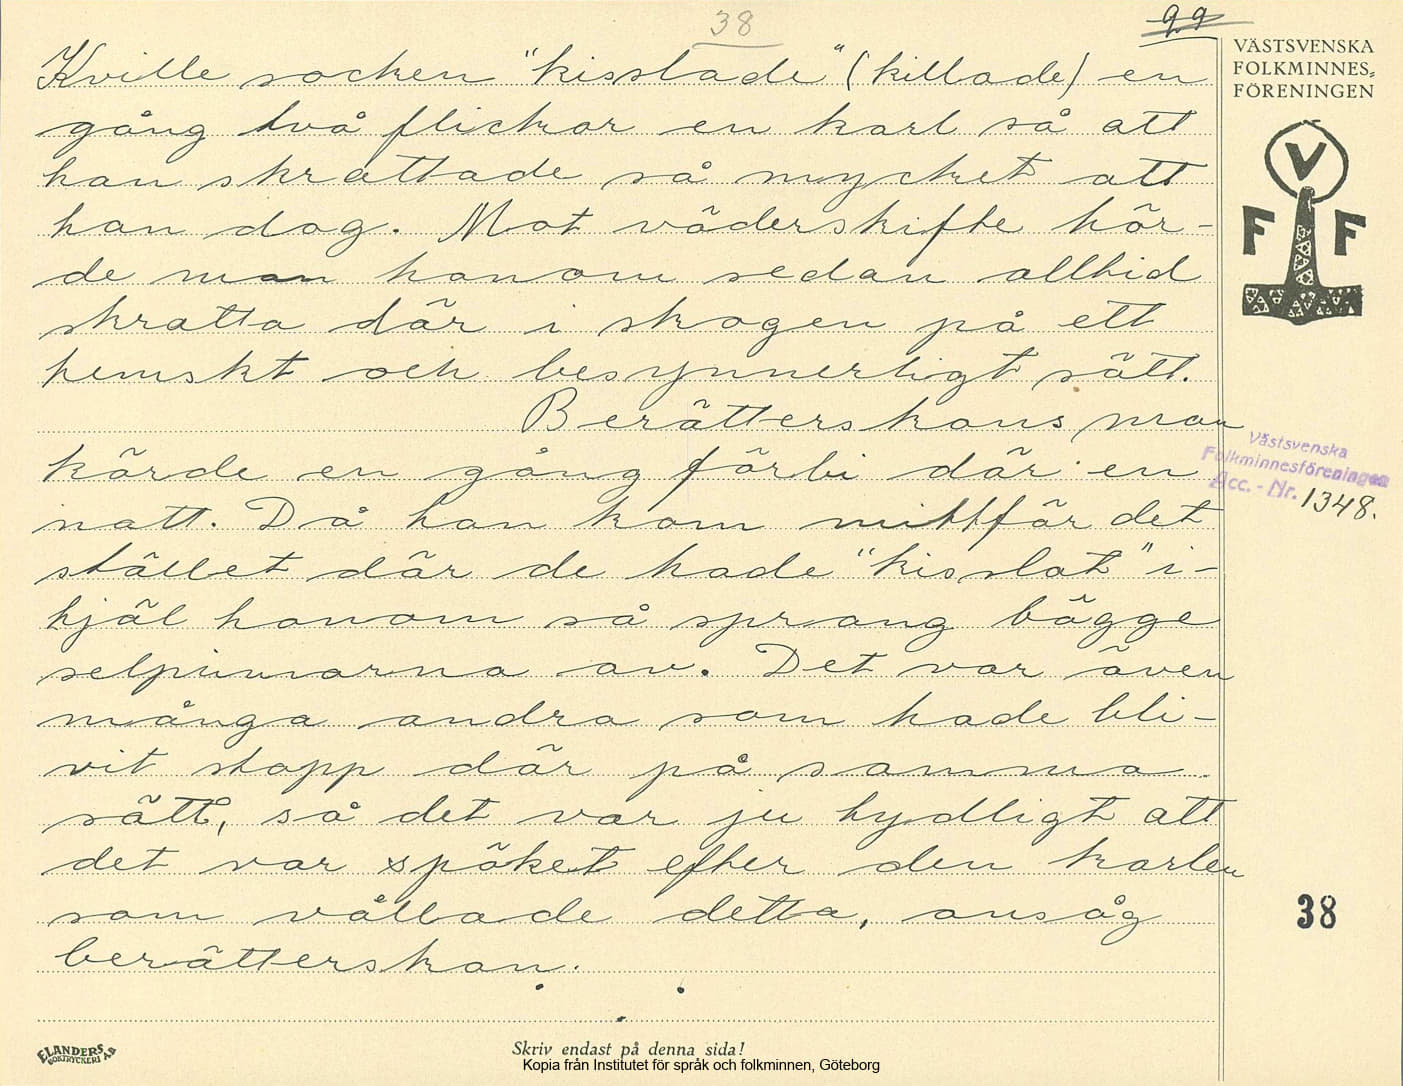 38
99
Kville socken "kisslade" (killade) en
gång två flickor en karl så att
han skrattade så mycket att
han dog. Mot väderskifte hör-
de man honom sedan alltid
skratta där i skogen på ett
hemskt och besynnerligt sätt.
Berätterskans man
körde en gång förbi där en
natt. Då han kom mittför det
stället där de hade "kisslat" i-
hjäl honom så sprang bägge
selpinnarna av. Det var även
många andra som hade bli-
vit stopp där på samma
sätt, så det var ju tydligt att
det var spöket efter den karlen
som vållade detta, ansåg
berätterskan.
VÄSTSVENSKA
FOLKMINNES-
FÖRENINGEN
V
F F
Västsvenska
Folkminnesföreningen
Acc. - Nr. 1348.
38
ELANDERS
BOKTRYCKERI A.B
Skriv endast på denna sida!
Kopia från Institutet för språk och folkminnen, Göteborg